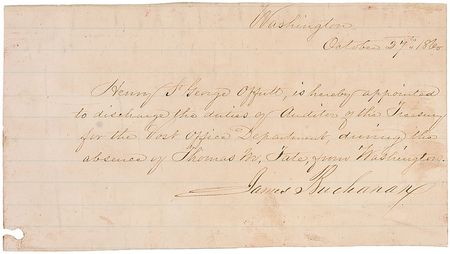 Washington
October 27th 1860
Henry St George Offutt, is hereby appointed
to discharge the duties of Auditor of the Treasury
for the Post Office Department, during the
absence of Thomas M. Tate, from Washington.
James Buchanan